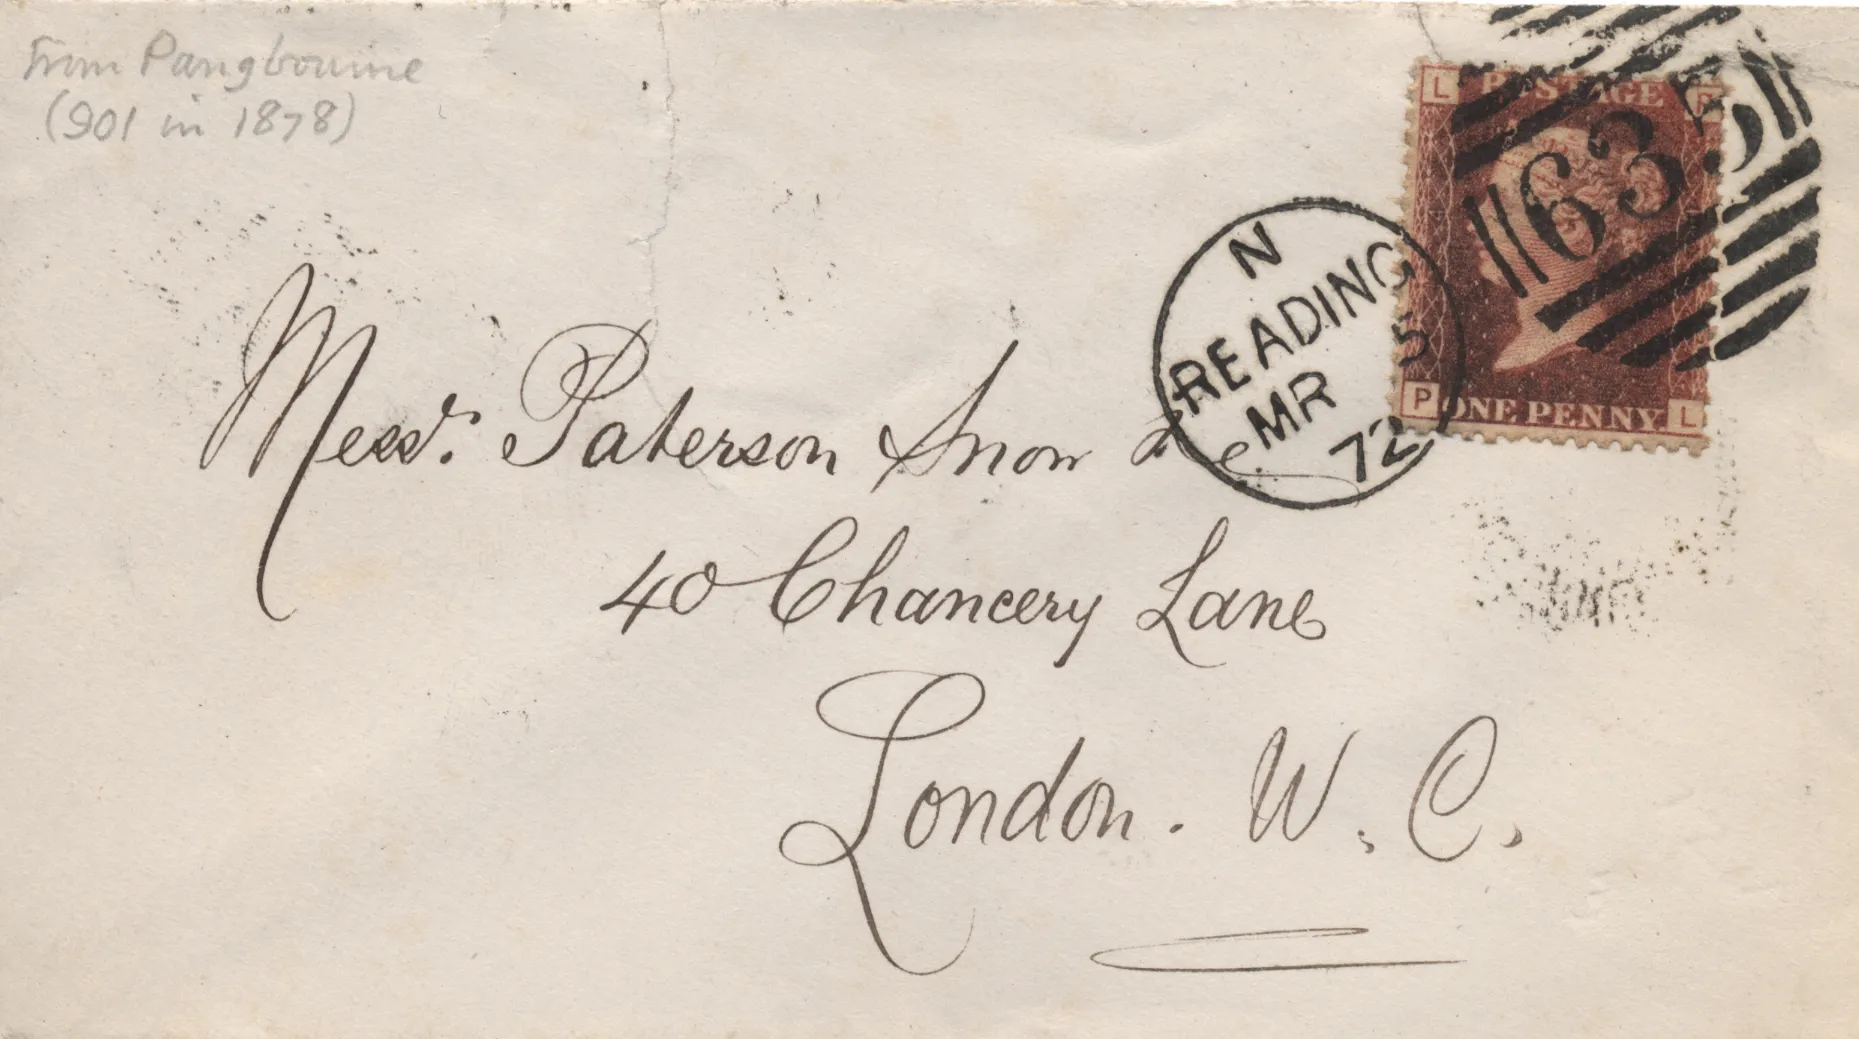 From Pangbourne
(901 in 1878)
L POSTAGE P
635
N
READING
MR 5
72
P ONE PENNY L
Messrs. Paterson Snow & Co
40 Chancery Lane
London. W. C.